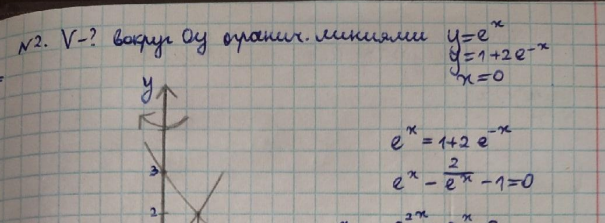 №2. V-? вокруг Oy огранич. линиями y=e^x
y=1+2e^-x
x=0
y
e^x = 1+2e^-x
3
e^x - 2/e^x - 1=0
2